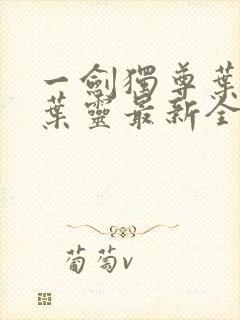 一劍獨尊葉
葉靈最新全
葡萄v